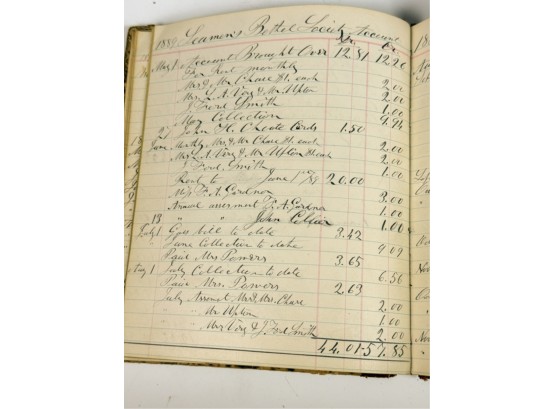 1889 Seamen's Bethel Society Account
Dr. Cr.
May 1 Account Brought Over 12.81
monthly
Mrs & Mr Chase $1. each 2.00
Mrs L. A. Very & Mr Upton 2.00
J Ford Smith 1.00
May Collection 9.94
John H. Choate Cards 1.50
June Monthly Mrs & Mr Chase $1. each 2.00
Mrs L. A. Very & Mr Upton each 2.00
J Ford Smith 1.00
Rent to June 1st /89 20.00
F. A. Gardner 3.00
Annual assessment F. A. Gardner 1.00
13 " " John Collier 1.00
July 1 Gas bill to date 3.42
June Collection to date 9.09
Paid Mrs Powers 3.65
Aug 1 July Collection to date 6.56
Paid Mrs. Powers 2.63
July Mrs & Mr Chase 2.00
" Mr Upton 1.00
" Mrs Very & J Ford Smith 2.00
44.01 57.85